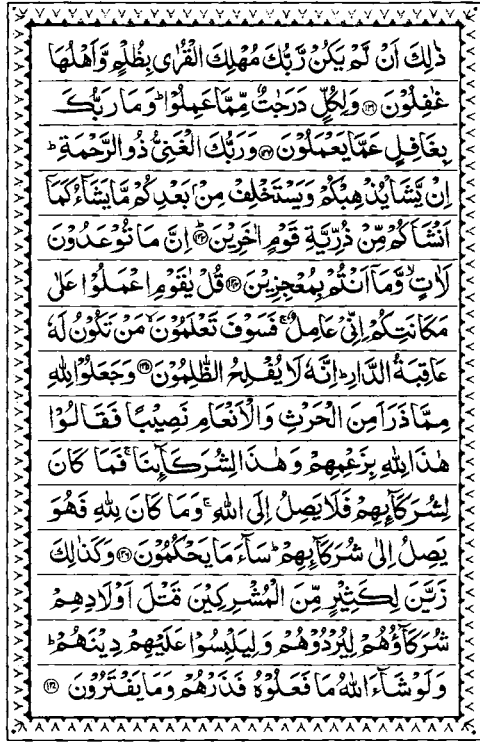 ذٰلِكَ اَنْ لَّمْ يَكُنْ رَّبُّكَ مُهْلِكَ الْقُرٰى بِظُلْمٍ وَّاَهْلُهَا
غٰفِلُوْنَ ﴿۱۳۱﴾ وَلِكُلٍّ دَرَجٰتٌ مِّمَّا عَمِلُوْا ؕ وَمَا رَبُّكَ
بِغَافِلٍ عَمَّا يَعْمَلُوْنَ ﴿۱۳۲﴾ وَرَبُّكَ الْغَنِىُّ ذُو الرَّحْمَةِ ؕ
اِنْ يَّشَاْ يُذْهِبْكُمْ وَيَسْتَخْلِفْ مِنْۢ بَعْدِكُمْ مَّا يَشَآءُ كَمَاۤ
اَنْشَاَكُمْ مِّنْ ذُرِّيَّةِ قَوْمٍ اٰخَرِيْنَ ؕ﴿۱۳۳﴾ اِنَّ مَا تُوْعَدُوْنَ
لَاٰتٍ ۙ وَّمَاۤ اَنْتُمْ بِمُعْجِزِيْنَ ﴿۱۳۴﴾ قُلْ يٰقَوْمِ اعْمَلُوْا عَلٰى
مَكَانَتِكُمْ اِنِّىْ عَامِلٌ ۚ فَسَوْفَ تَعْلَمُوْنَ ۙ مَنْ تَكُوْنُ لَهٗ
عَاقِبَةُ الدَّارِ ؕ اِنَّهٗ لَا يُفْلِحُ الظّٰلِمُوْنَ ﴿۱۳۵﴾ وَجَعَلُوْا لِلّٰهِ
مِمَّا ذَرَاَ مِنَ الْحَرْثِ وَالْاَنْعَامِ نَصِيْبًا فَقَالُوْا
هٰذَا لِلّٰهِ بِزَعْمِهِمْ وَهٰذَا لِشُرَكَآئِنَا ۚ فَمَا كَانَ
لِشُرَكَآئِهِمْ فَلَا يَصِلُ اِلَى اللّٰهِ ۚ وَمَا كَانَ لِلّٰهِ فَهُوَ
يَصِلُ اِلٰى شُرَكَآئِهِمْ ؕ سَآءَ مَا يَحْكُمُوْنَ ﴿۱۳۶﴾ وَكَذٰلِكَ
زَيَّنَ لِكَثِيْرٍ مِّنَ الْمُشْرِكِيْنَ قَتْلَ اَوْلَادِهِمْ
شُرَكَآؤُهُمْ لِيُرْدُوْهُمْ وَلِيَلْبِسُوْا عَلَيْهِمْ دِيْنَهُمْ ؕ
وَلَوْ شَآءَ اللّٰهُ مَا فَعَلُوْهُ فَذَرْهُمْ وَمَا يَفْتَرُوْنَ ﴿۱۳۷﴾